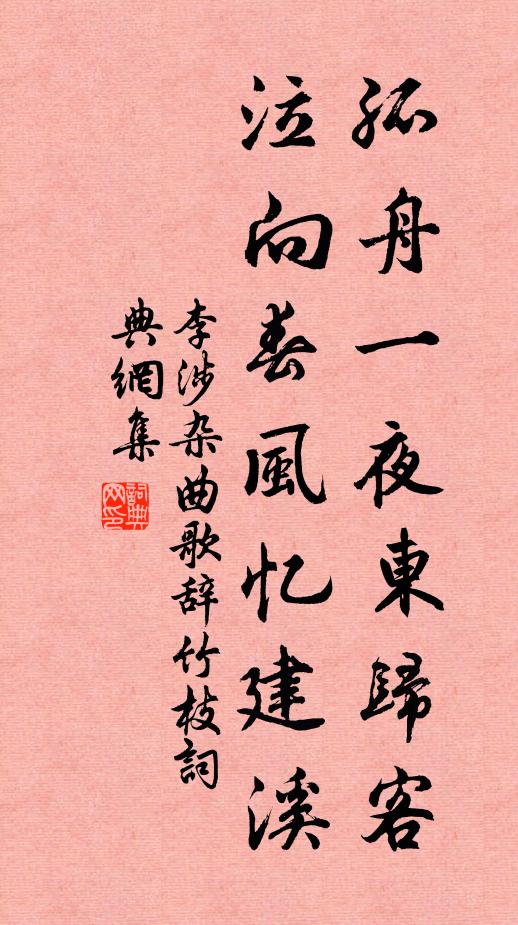 孤舟一夜東歸客
泣向春風忆建溪
李涉杂曲歌辞竹枝詞
典網集
詞典网印